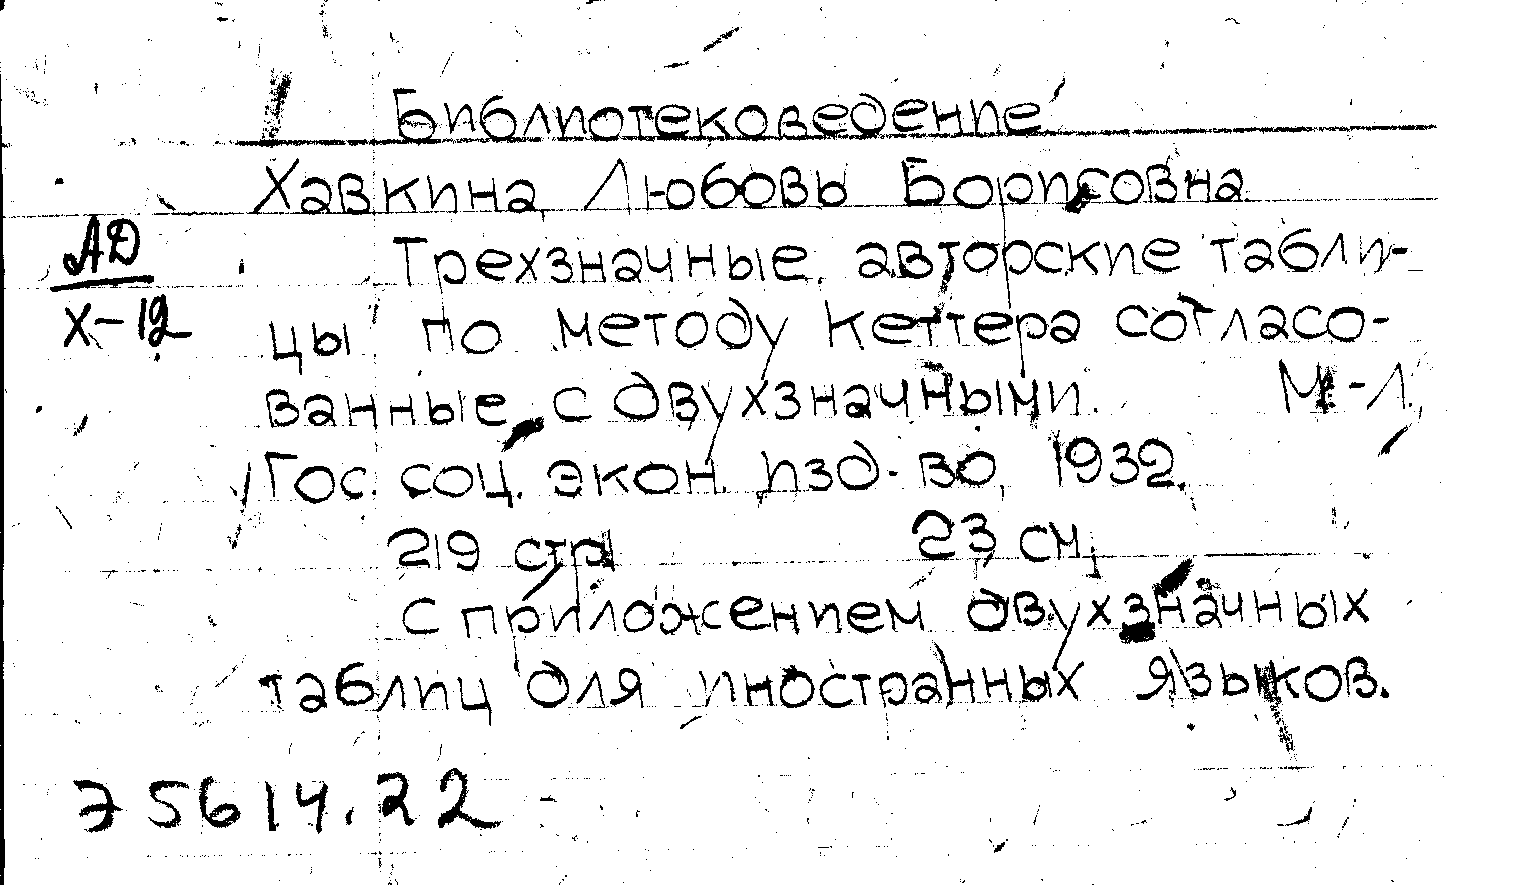 Библиотековедение
Хавкина, Любовь Борисовна.
АД
Х-12
Трехзначные авторские табли-
цы по методу Кеттера согласо-
ванные с двухзначными. М-Л.,
Гос. соц. экон. изд-во, 1932.
219 стр. 23 см.
С приложением двухзначных
таблиц для иностранных языков.
75614.22